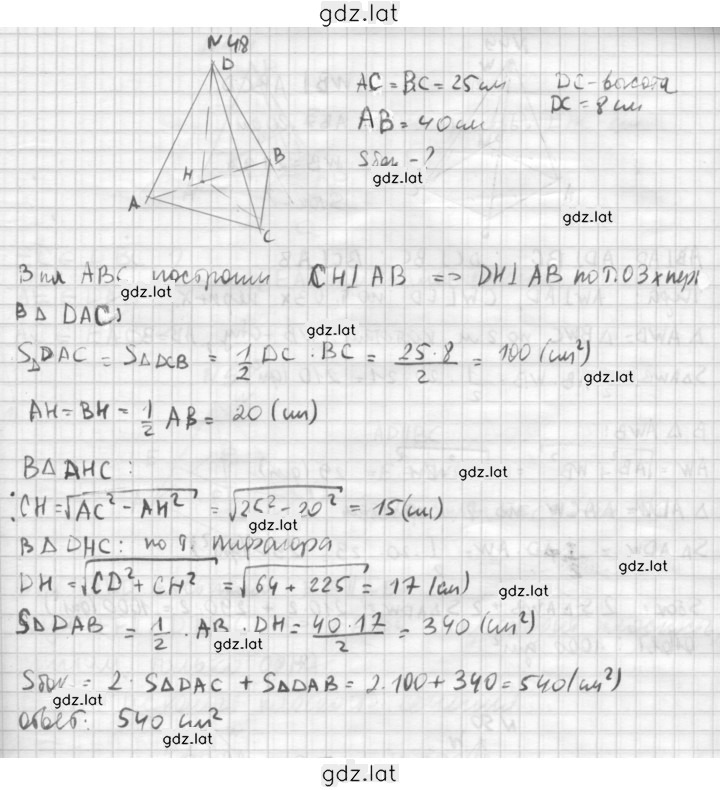 gdz.lat
N48
D
AC = BC = 25 см DC - высота
DC = 8 см
AB = 40 см
Sбок - ?
gdz.lat
B
H
A
C
gdz.lat
В пл ABC построим CH⊥AB => DH⊥AB по т. о 3х пер
gdz.lat
В Δ DAC:
gdz.lat
SΔDAC = SΔDCB = 1/2 DC · BC = 25·8/2 = 100 (см²)
gdz.lat
AH = BH = 1/2 AB = 20 (см)
В Δ AHC:
gdz.lat
CH = √AC² - AH² = √25² - 20² = 15 (см)
gdz.lat
В Δ DHC: по т. Пифагора
gdz.lat
DH = √CD² + CH² = √64 + 225 = 17 (см)
gdz.lat
SΔDAB = 1/2 · AB · DH = 40·17/2 = 340 (см²)
gdz.lat
Sбок = 2 · SΔDAC + SΔDAB = 2·100 + 340 = 540 (см²)
gdz.lat
Ответ: 540 см²
gdz.lat
gdz.lat